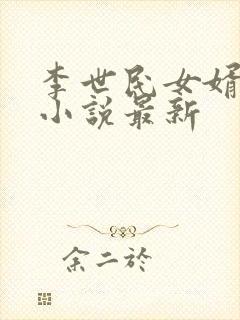 李世民女婿
小說最新
余二於